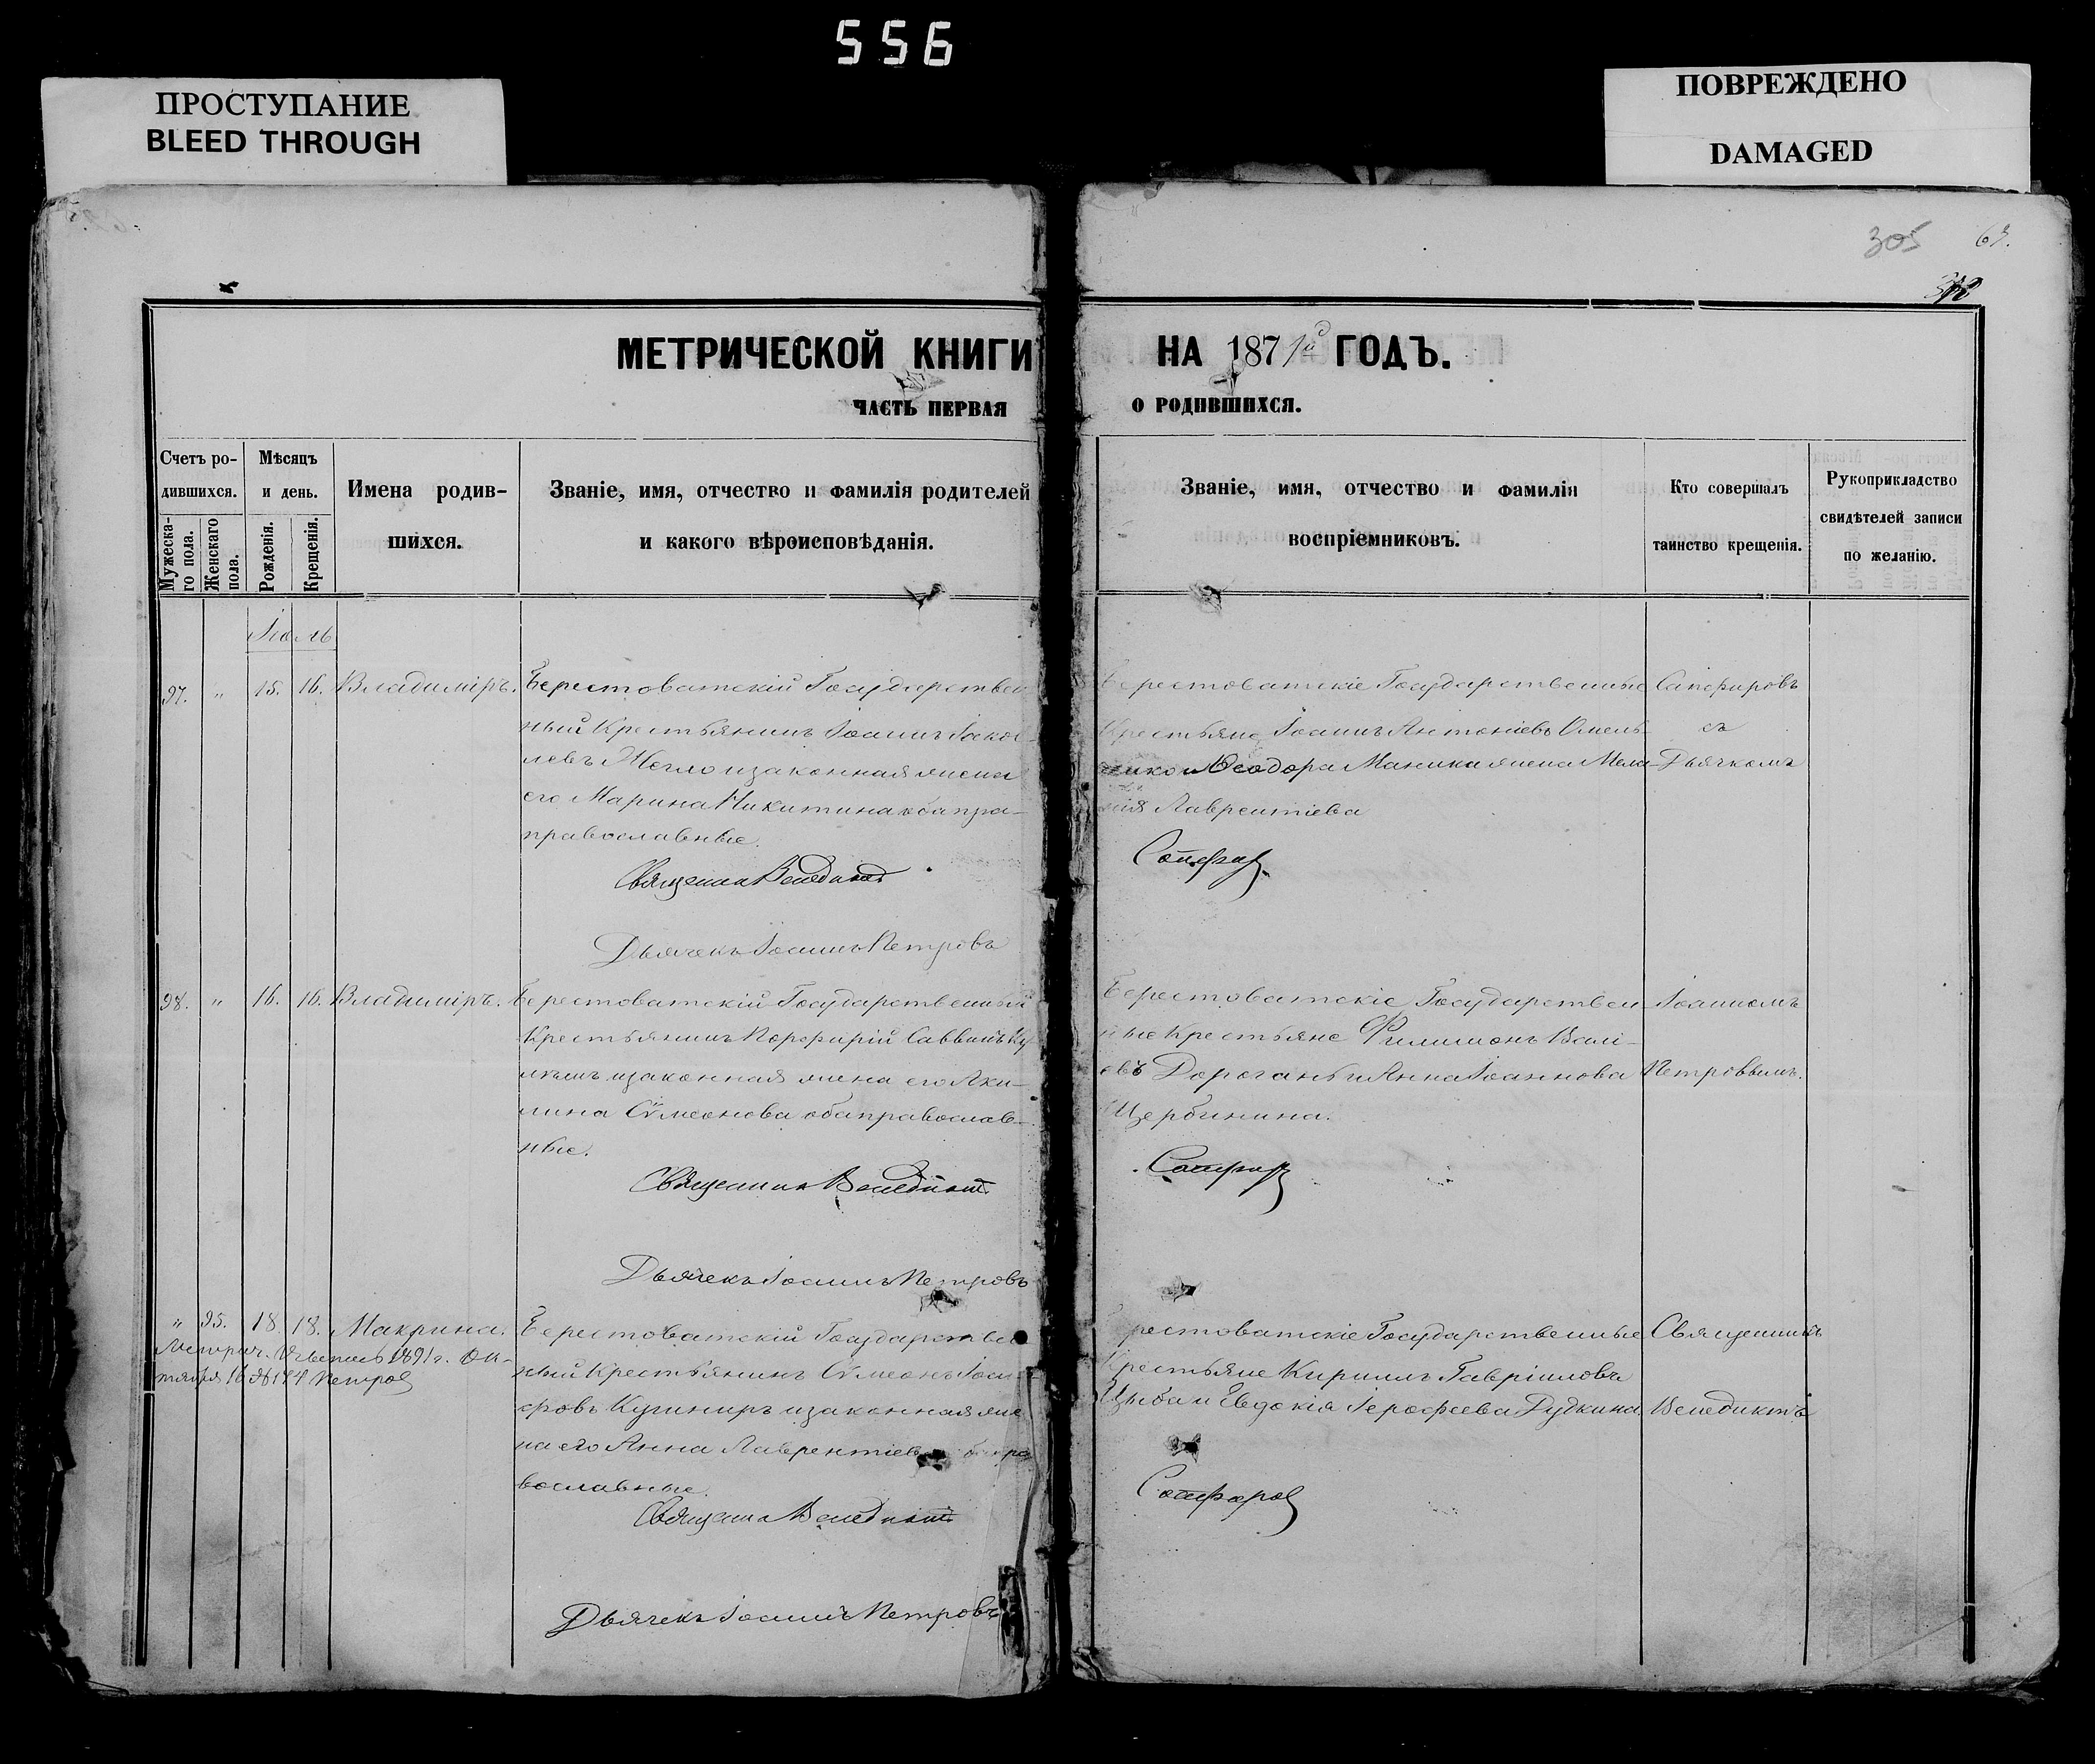 556
ПРОСТУПАНИЕ
BLEED THROUGH
ПОВРЕЖДЕНО
DAMAGED
305
МЕТРИЧЕСКОЙ КНИГИ НА 1871й ГОДЪ.
ЧАСТЬ ПЕРВАЯ О РОДИВШИХСЯ.
Счетъ родившихся.
Мужеска-
го пола.
Женскаго
пола.
Мѣсяцъ
и день.
Рожденія.
Крещенія.
Имена родив-
шихся.
Званіе, имя, отчество и фамилія родителей
и какого вѣроисповѣданія.
Званіе, имя, отчество и фамилія
воспріемниковъ.
Кто совершалъ
таинство крещенія.
Рукоприкладство
свидѣтелей записи
по желанію.
Іюль
97. " 15. 16. Владиміръ.
Берестоватскій Государствен
ный Крестьянинъ Іоаннъ Іаков-
левъ и законная жена
его Марина Никитина оба пра-
православные.
Священни Венедикт
Дьячекъ Іоаннъ Петровъ
Берестоватскіе Государственные
Крестьяне Іоаннъ Антоніевъ Омель-
ченко и Ѳеодора Маника жена Мела-
нія Лаврентіева
Сапфировъ
съ
Дьячкомъ
98. " 16. 16. Владиміръ.
Берестоватскій Государственный
Крестьянинъ Порфирій Саввинъ
и законная жена его Аки-
лина Сѵмеонова оба православ-
ные.
Священни Венедикт
Дьячекъ Іоаннъ Петровъ
Берестоватскіе Государствен
ные Крестьяне Филимонъ
Дорогань и Анна Іоаннова
Щербинина.
Іоанномъ
Петровымъ.
" 95. 18. 18. Макрина.
Метрич. 1891 г. Ок-
тября 16 № 174 Петров
Берестоватскій Государствен
ный Крестьянинъ Сѵмеонъ
и законная же
на его Анна Лаврентіева
вославные.
Священни Венедикт
Дьячекъ Іоаннъ Петровъ
рестоватскіе Государственные
Крестьяне Кириллъ Гавріиловъ
Цыба и Евдокія Іерофеева Дудкина.
Сапфиров
Священникъ
Венедиктъ